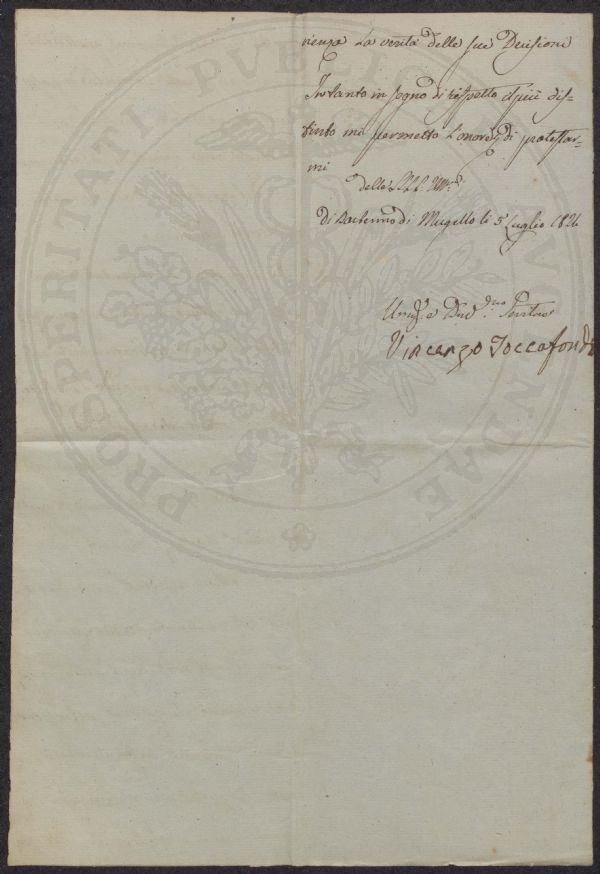 rienza La verità delle sue Decisioni
Intanto in segno di rispetto il più dis=
tinto mi permetto l'onore di protestar=
mi
delle SS.LL. Ill.
di Barberino di Mugello li 5 Luglio 1826
Servitore
Vincenzo Toccafondi
PROSPERITATI PUBLICAE AUGENDAE